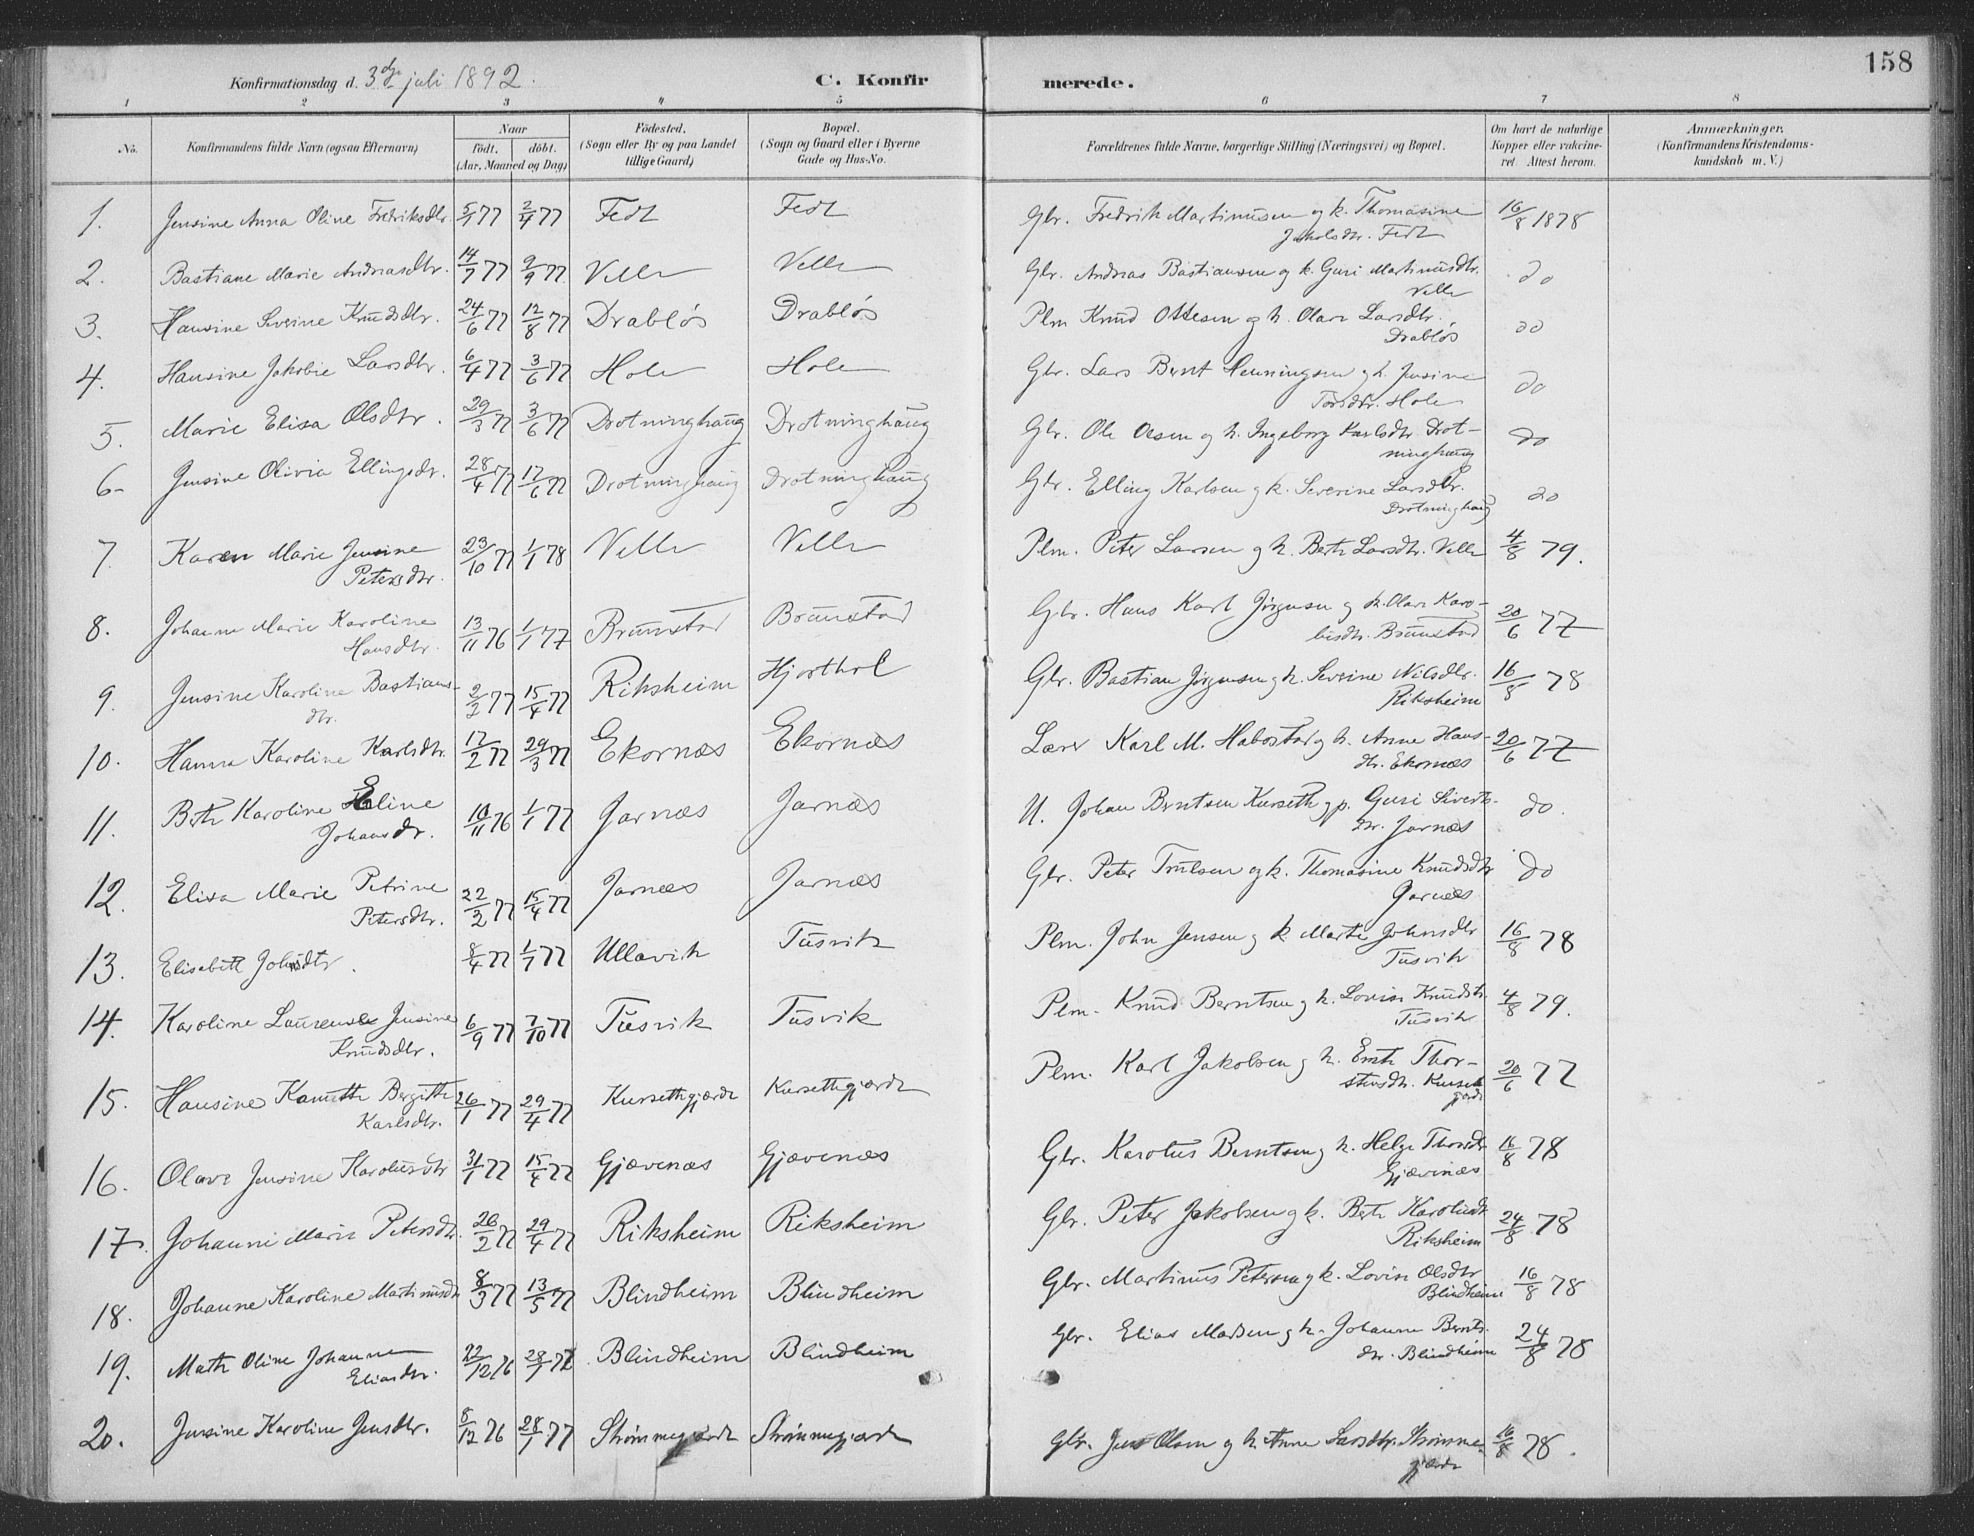 158
Konfirmationsdag d. 3die juli 1892.
C. Konfirmerede.
1 2 3 4 5 6 7 8
No. Konfirmandens fulde Navn (ogsaa Efternavn) Naar födt. döbt. (Aar, Maaned og Dag) Födested. (Sogn eller By og paa Landet tillige Gaard) Bopæl. (Sogn og Gaard eller i Byerne Gade og Hus-No. Forældrenes fulde Navne, borgerlige Stilling (Næringsvei) og Bopæl. Om havt de naturlige Kopper eller vakcineret Attest herom. Anmærkninger. (Konfirmandens Kristendomskundskab m. V.)
1. Jensine Anna Oline Fredriksdtr. 5/1 77 2/4 77 Fedt Fedt Gbr. Fredrik Martinusen og k. Thomasine 16/8 1878
Jakobsdtr. Fedt
2. Bastiane Marie Andreasdtr. 14/7 77 9/9 77 Velle Velle Gbr. Andreas Bastiansen og k. Guri Martinusdtr. do
Velle
3. Hansine Severine Knudsdtr. 24/6 77 12/8 77 Drabløs Drabløs Plm Knud Ottesen og h. Olave Larsdtr. do
Drabløs
4. Hansine Jakobie Larsdtr. 6/4 77 3/6 77 Hole Hole Gbr. Lars Bernt Henningsen og h. Jensine do
Hole
5. Marie Elisa Olsdtr. 29/3 77 3/6 77 Drotninghaug Drotninghaug Gbr. Ole Olsen og h. Ingeborg Karlsdtr. Drot- do
ninghaug
6- Jensine Olivia Ellingsdtr. 28/4 77 17/6 77 Drotninghaug Drotninghaug Gbr. Elling Karlsen og k. Severine Larsdtr. do
Drotninghaug
7. Karen Marie Jensine 23/10 77 1/1 78 Velle Velle Plm. Peter Larsen og h. Berte Larsdtr. Velle 4/8 79.
Petersdtr.
8. Johanne Marie Karoline 13/11 76 1/1 77 Brunstad Brunstad Gbr. Hans Karl Jørgensen og k. Olave Karo- 20/6 77
Hansdtr. Brunstad
9. Jensine Karoline Bastians- 2/2 77 15/4 77 Riksheim Hjorthol Gbr. Bastian Jørgensen og h. Severine Nilsdtr. 16/8 78
dtr. Riksheim
10. Hanna Karoline Karlsdtr. 17/2 77 29/3 77 Ekornæs Ekornæs Lærer Karl M. Habostad og h. Anne Hans- 20/6 77
dtr. Ekornæs
11. Berte Karoline Eline 10/11 76 1/1 77 Jarnæs Jarnæs U. Johan Berntsen Kurseth og p. Guri Siverts- do.
Johansdr. dtr. Jarnæs
12. Elisa Marie Petrine 22/2 77 15/4 77 Jarnæs Jarnæs Gbr. Peter Trulsen og k. Thomasine Knudsdtr do
Petersdtr. Jarnæs
13. Elisabett Johnsdtr. 8/4 77 1/7 77 Ullavik Tusvik Plm. John Jensen og k Marte Johnsdtr 16/8 78
Tusvik
14. Karoline Laurense Jensine 6/9 77 7/10 77 Tusvik Tusvik Plm. Knud Berntsen og h. Lovise Knudsdtr. 4/8 79.
Knudsdtr. Tusvik
15. Hansine Kanutte Bergitte 26/1 77 29/4 77 Kursethgjærde Kursethgjærde Plm. Karl Jakobsen og h. Thor- 20/6 77
Karlsdtr. stensdtr.
16. Olave Jensine Karolusdtr 31/1 77 15/4 77 Gjævenæs Gjævenæs Gbr. Karolus Berntsen og h. Helge 16/8 78
Gjævenæs
17. Johanne Marie Petersdtr. 26/2 77 29/4 77 Riksheim Riksheim Gbr. Peter Jakobsen og k. Berte Karolusdtr. 24/8 78
Riksheim
18. Johanne Karoline Martinusdtr 8/3 77 13/5 77 Blindheim Blindheim Gbr. Martinus Petersen og k. Lovise Olsdtr 16/8 78
Blindheim
19. Mathe Oline Johanne 22/12 76 28/1 77 Blindheim Blindheim Gbr. Elias Madsen og h. Johanne Bernts- 24/8 78
Eliasdtr. dtr. Blindheim
20. Jensine Karoline Jensdtr. 8/12 76 28/1 77 Strømmegjærde Strømmegjærde Gbr. Jens Olsen og h. Anne Larsdtr. Strømme- 16/8 78.
gjærde